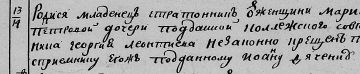 13/14 Родися младенецъ стратонникъ, ѿ женщини Марии
Петровой дочери подданой Коллежского Совт
ника георгия леонтиева незаконно крещенъ п
стриемнику егожъ подданному Иоанну